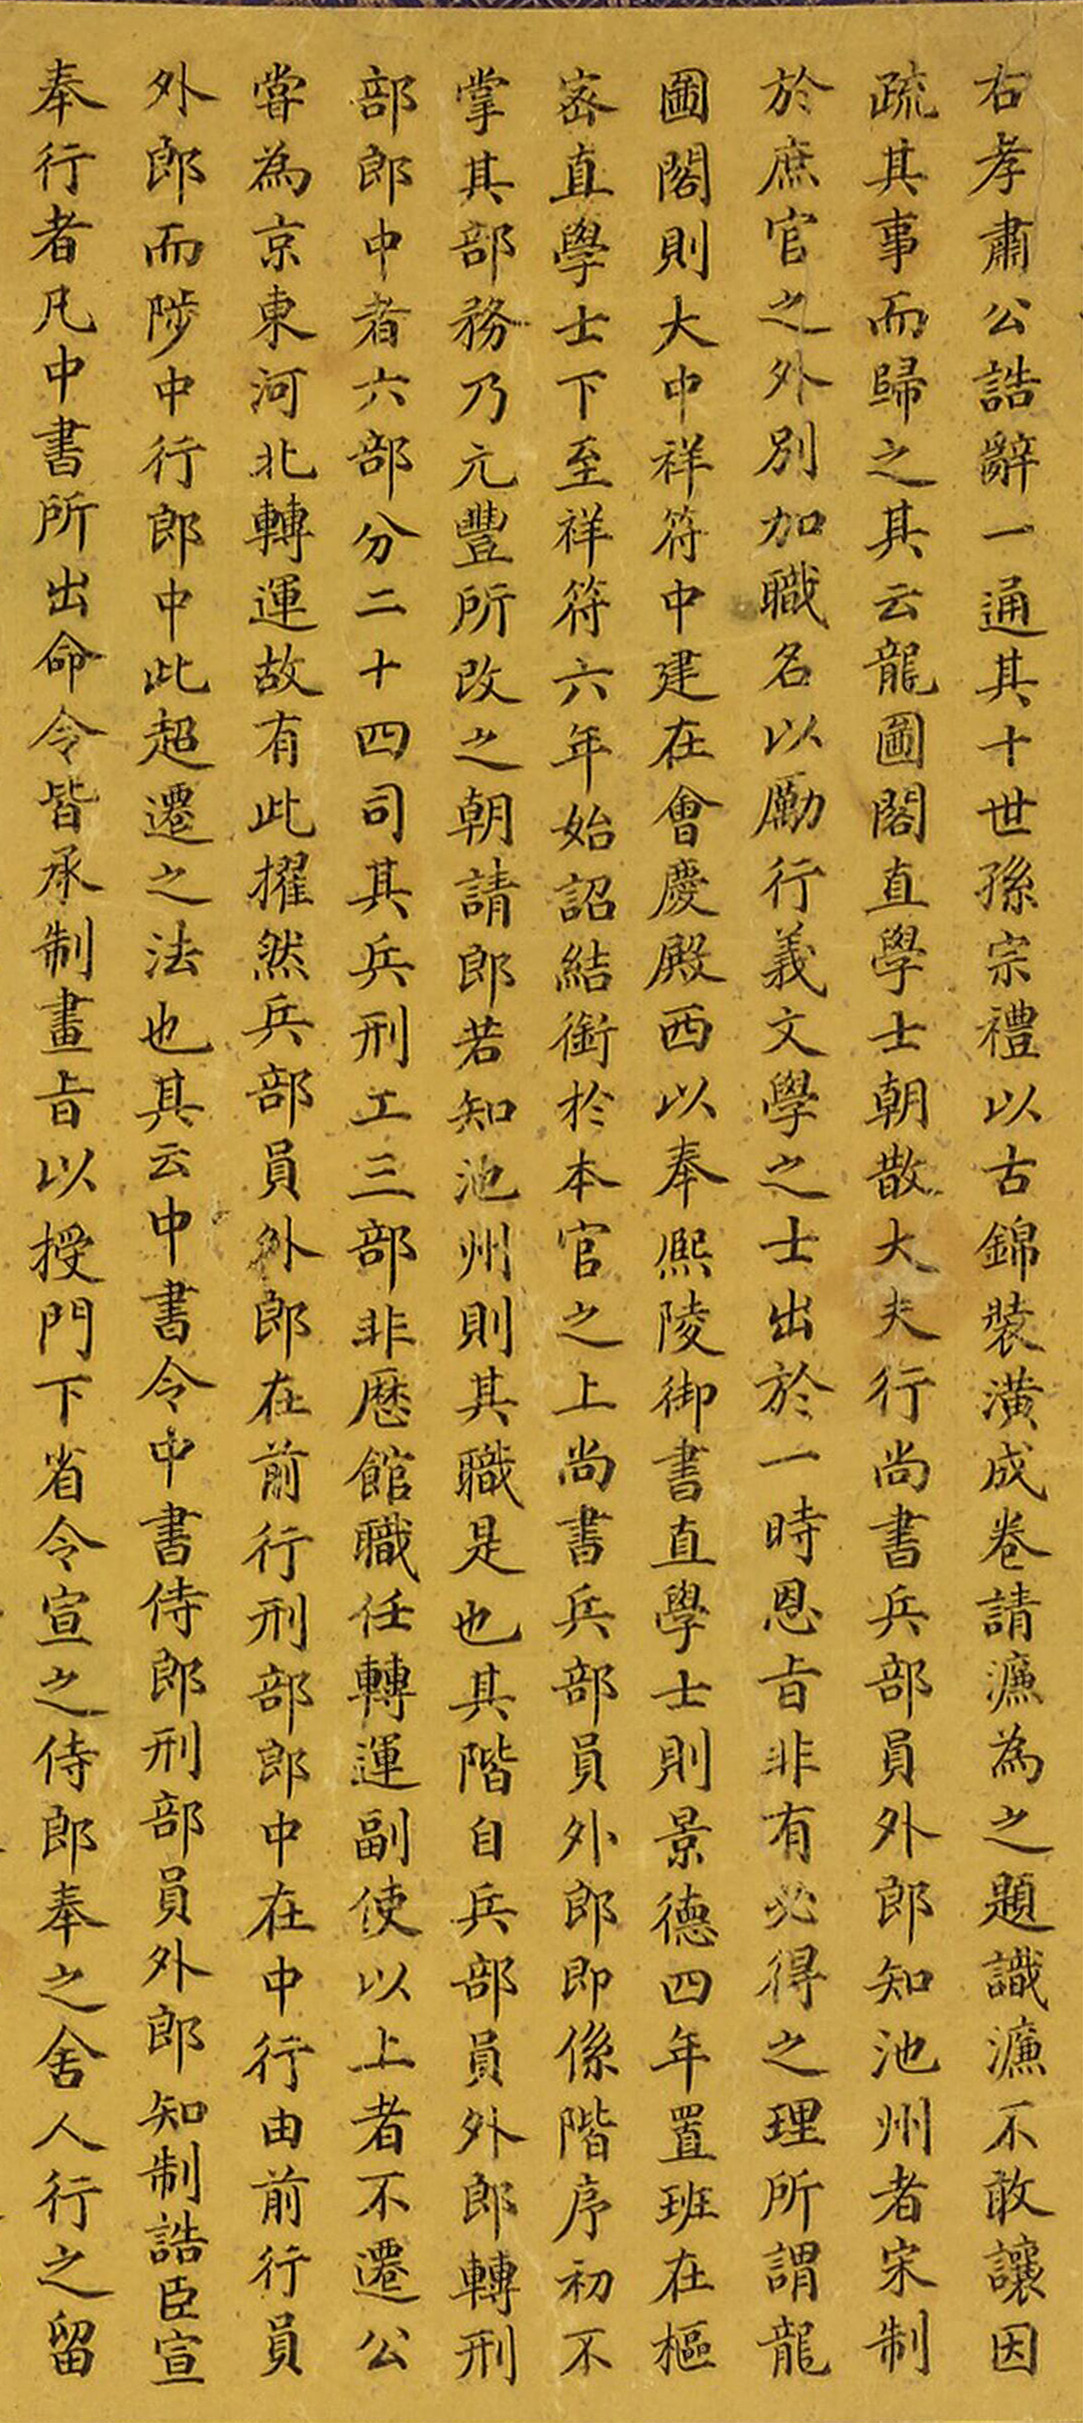 右孝肅公誥辭一通其十世孫宗禮以古錦裝潢成卷請濂為之題識濂不敢讓因
疏其事而歸之其云龍圖閣直學士朝散大夫行尚書兵部員外郎知池州者宋制
於庶官之外別加職名以勵行義文學之士出於一時恩旨非有必得之理所謂龍
圖閣則大中祥符中建在會慶殿西以奉熈陵御書直學士則景德四年置班在樞
密直學士下至祥符六年始詔結銜於本官之上尚書兵部員外郎即係階序初不
掌其部務乃元豐所改之朝請郎若知池州則其職是也其階自兵部員外郎轉刑
部郎中者六部分二十四司其兵刑工三部非歷館職任轉運副使以上者不遷公
嘗為京東河北轉運故有此擢然兵部員外郎在前行刑部郎中在中行由前行員
外郎而陟中行郎中此超遷之法也其云中書令中書侍郎刑部員外郎知制誥臣宣
奉行者凡中書所出命令皆承制畫旨以授門下省令宣之侍郎奉之舍人行之留